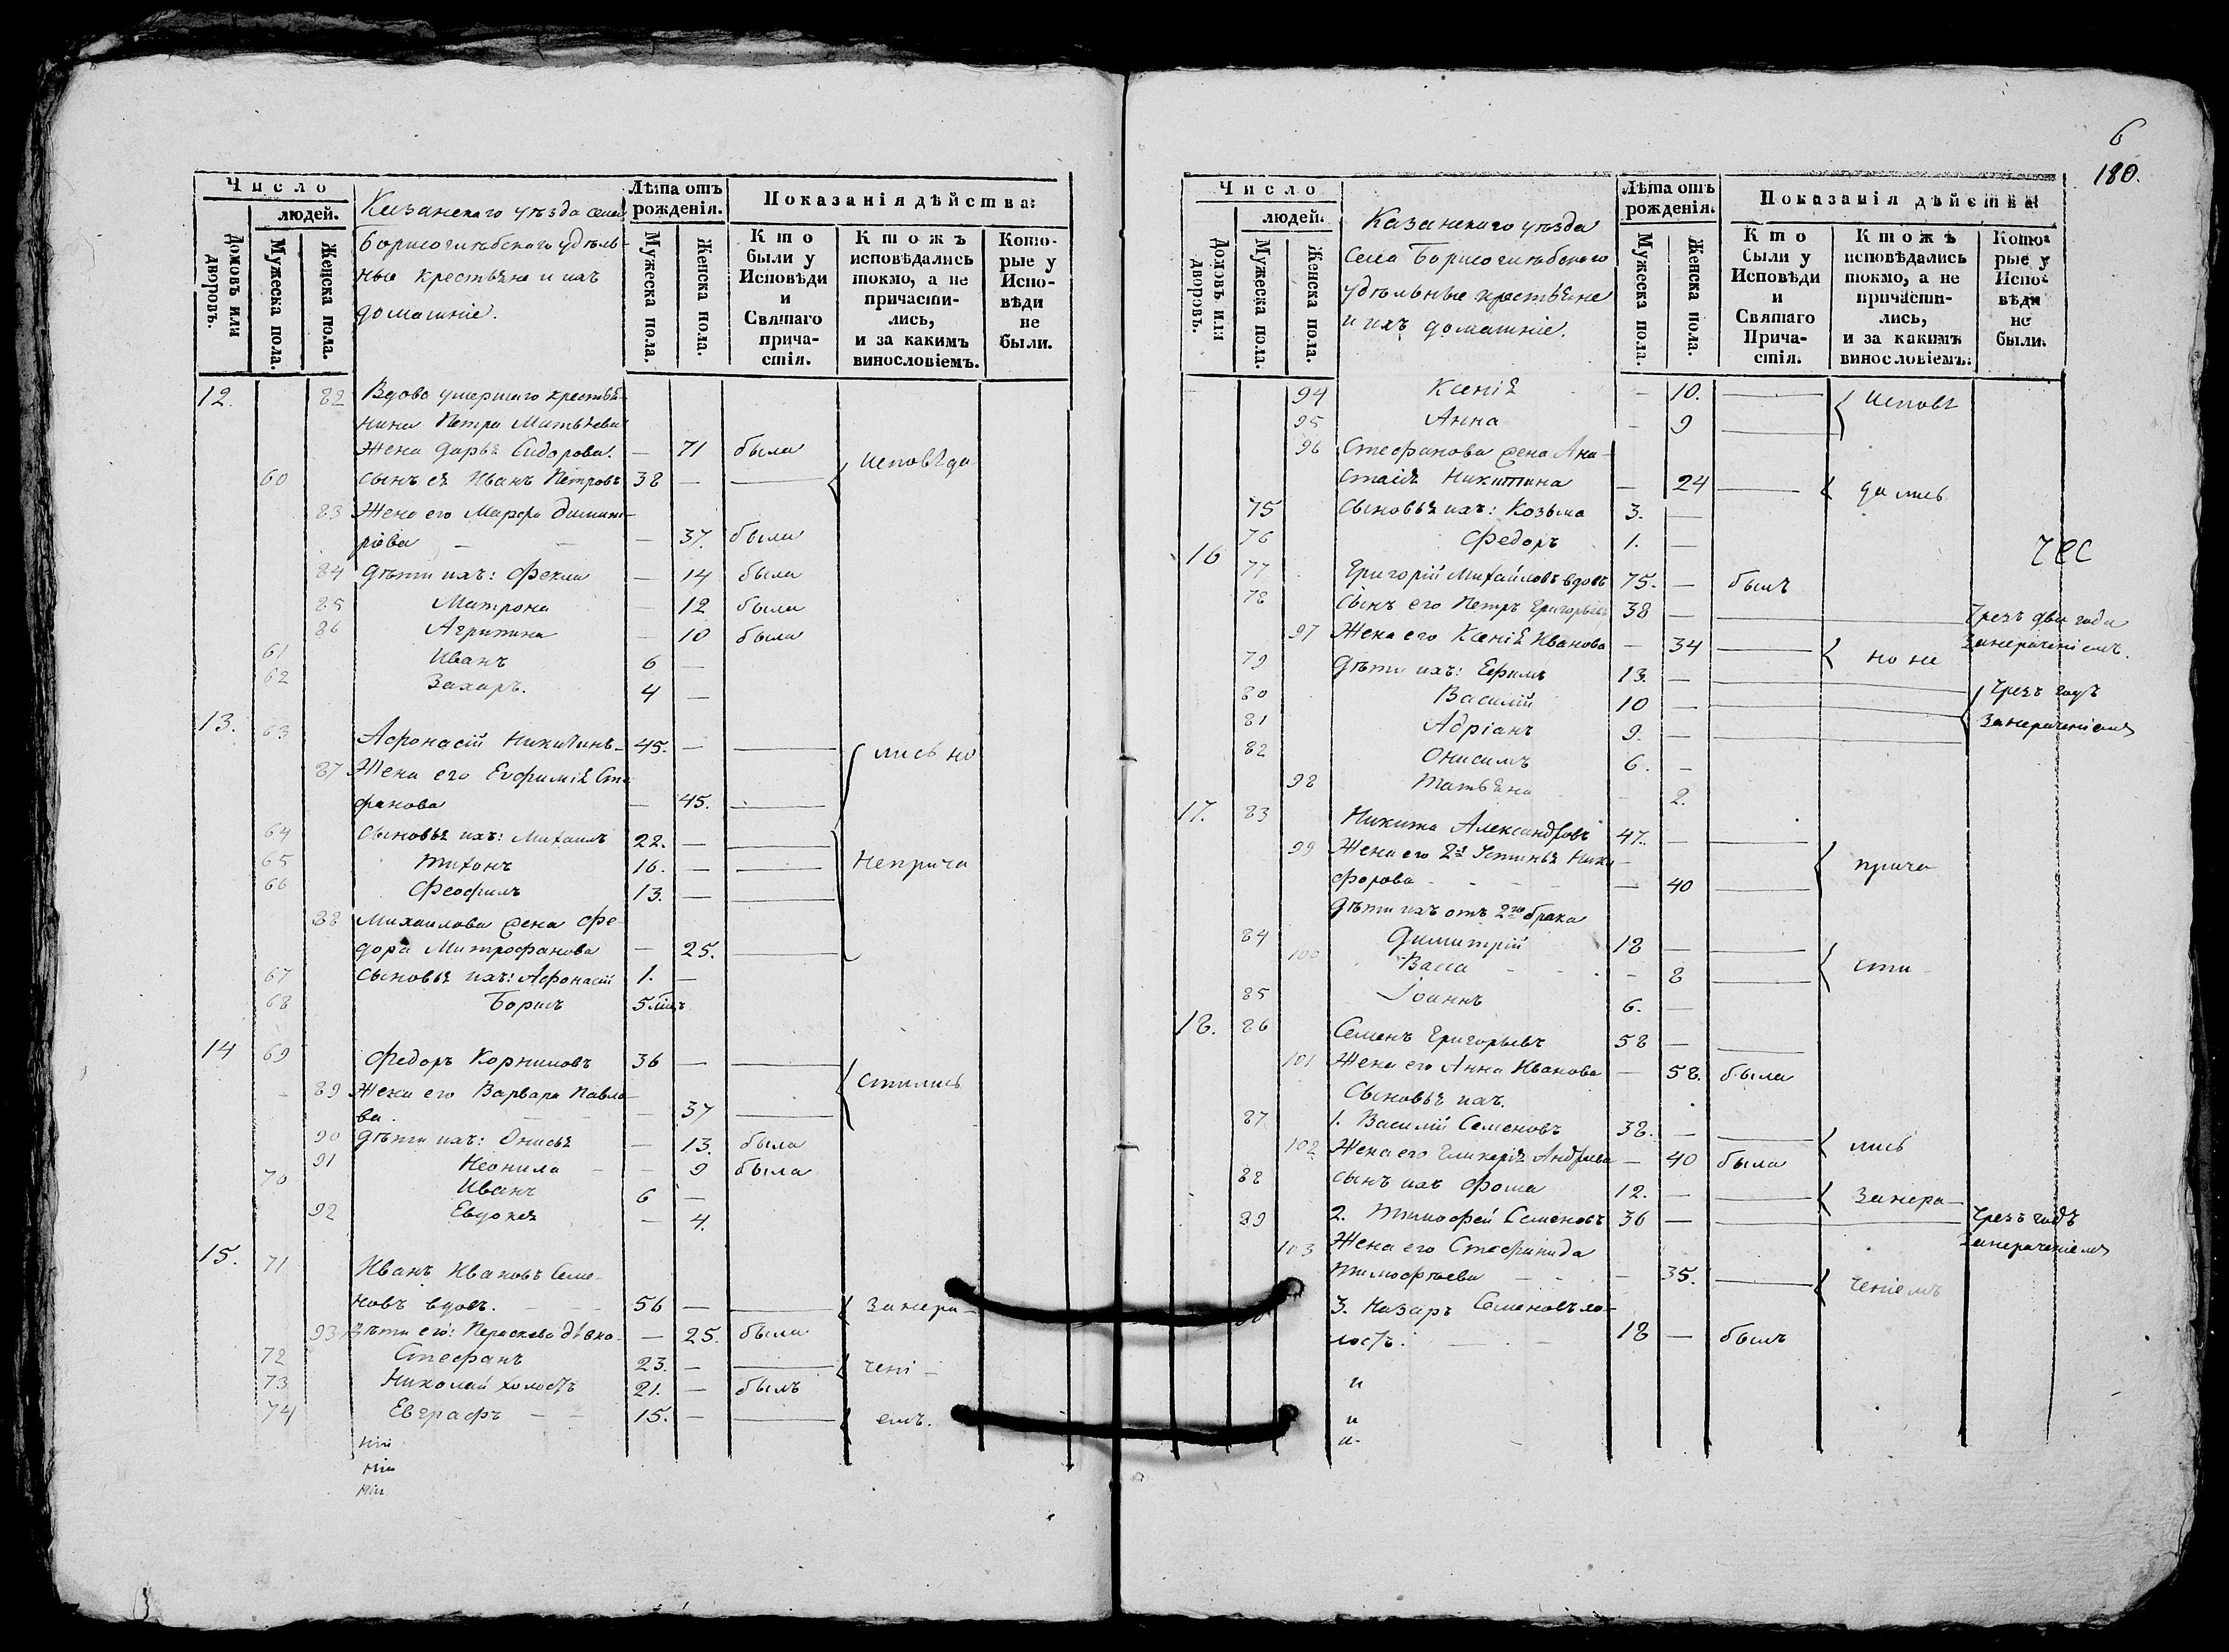 Число
людей.
Домовъ или дворовъ.
Мужеска пола.
Женска пола.
Казанскаго уѣзда села
Борисоглѣбскаго удѣль-
ные крестьяне и ихъ
домашніе.
Лѣта отъ рожденія.
Мужеска пола.
Женска пола.
Показанія дѣйства:
Кто были у Исповѣди и Святаго причастія.
Ктожъ исповѣдались токмо, а не причастились, и за какимъ винословіемъ.
Которые у Исповѣди не были.
12. 82 Вдова умершаго крестья-
нина Петра Матвѣева
жена Дарья Сидорова. — 71 была
60 Сынъ ея Иванъ Петровъ 38 — — Исповѣда
83 Жена его Марфа Димит-
ріева — — 37. была
84 Дѣти ихъ: Фекла — 14 была
85 Матрона — 12 была
86 Агрипина — 10 была
61 Иванъ 6 —
62 Захаръ. 4 —
13. 63 Афонасій Никитинъ 45. — — лись но
87 Жена его Евфимія Сте-
фанова — 45. —
64 Сыновья ихъ: Михаилъ 22. — —
65 Тихонъ 16. — — Неприча
66 Феофилъ 13. — —
88 Михаилова жена Фе-
дора Митрофанова — 25. —
67 Сыновья ихъ: Афонасій 1. —
68 Борисъ 5 мѣц
14 69 Федоръ Корниловъ 36 — —
89 Жена его Варвара Павло- стились
ва. — 37 —
90 Дѣти ихъ: Анисья — 13. была
91 Неонила — — 9 была
70 Иванъ 6 —
92 Евдокея — 4.
15. 71 Иванъ Ивановъ Семе-
новъ вдовъ. 56 — — Занера-
93 Дѣти его: Параскева дѣвка — 25. была
72 Стефанъ 23. — — чені-
73 Николай холостъ 21. — былъ
74 Евграфъ 15. — — емъ.
6
180.
Число
людей.
Домовъ или дворовъ.
Мужеска пола.
Женска пола.
Казанскаго уѣзда
Села Борисоглѣбскаго
удѣльные крестьяне
и ихъ домашніе.
Лѣта отъ рожденія.
Мужеска пола.
Женска пола.
Показанія дѣйства:
Кто были у Исповѣди и Святаго Причастія.
Ктожъ исповѣдались токмо, а не причастились, и за какимъ винословіемъ.
Которые у Исповѣди не были.
94 Ксенія — 10. — Исповѣ
95 Анна — 9 —
96 Стефанова жена Ана-
стасія Никитина — 24 — дались
75 Сыновья ихъ: Козьма 3. —
76 Федоръ 1. —
16 77 Григорій Михайловъ вдовъ 75. — былъ
78 Сынъ его Петръ Григорьевъ 38 — — Чрезъ два года
97 Жена его Ксенія Иванова — 34 — но не Занераченіемъ.
79 Дѣти ихъ: Ефимъ 13. — —
80 Василій 10 — — Чрезъ годъ
81 Адріанъ 9. — — Занераченіемъ
82 Онисимъ 6. —
98 Татьяна — 2.
17. 83 Никита Александровъ 47. — —
99 Жена его 2я Устинья Ники-
форова — 40 — прича
Дѣти ихъ отъ 2го брака
84 Димитрій 18 — —
100 Васса — 8 — сти
85 Іоаннъ 6. —
18. 86 Семенъ Григорьевъ 58 — —
101 Жена его Анна Иванова — 58. была
Сыновья ихъ.
87 1. Василій Семеновъ 38. — — лись
102 Жена его Гликерія Андреева — 40 была
88 Сынъ ихъ Фома 12. — — Занера-
89 2. Тимофей Семеновъ 36 — — Чрезъ годъ
103 Жена его Стефанида Занераченіемъ
Тимофѣева — 35. — ченіемъ
3. Назаръ Семеновъ хо-
лостъ. 18 — былъ